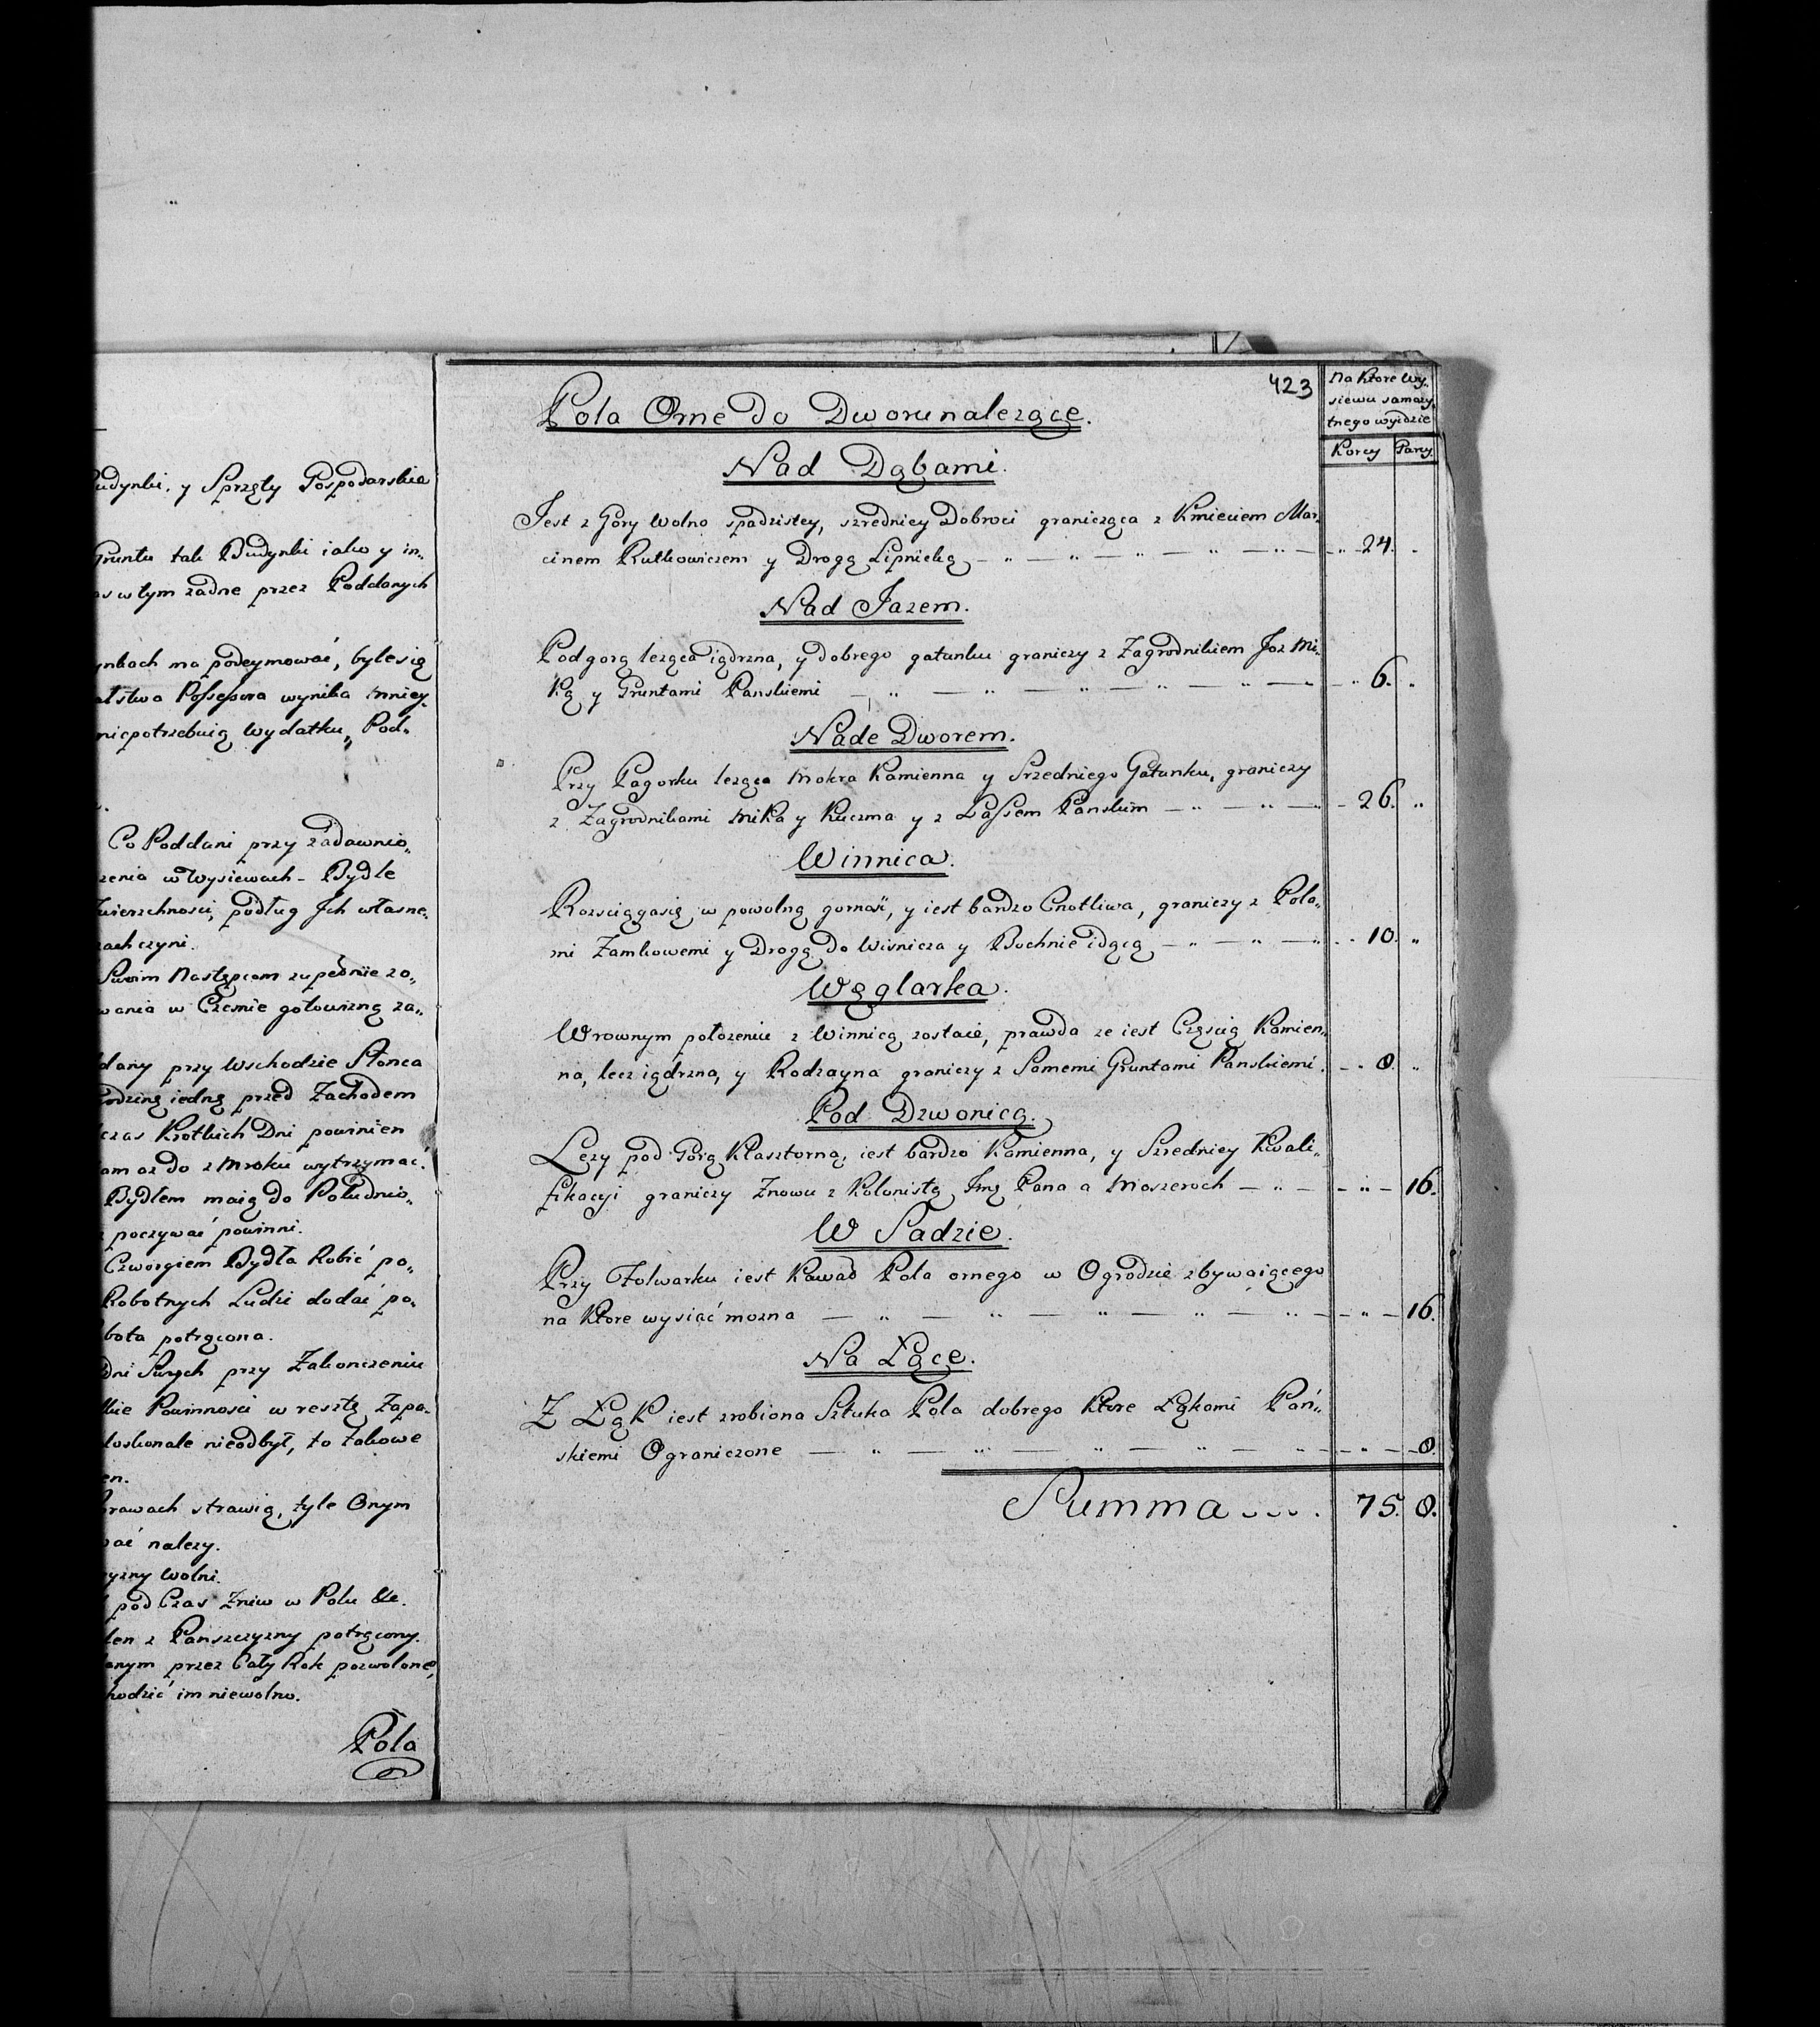 Budynki, y Sprzęty Gospodarskie
Gruntu tak Budynki iako y in„
w tym żadne przez Poddanych
ma podeymować, byle się
Possesora wynika mniey„
niepotrzebuią Wydatku„ Pod„
Co Poddani przy zadawnio„
w Wysiewach - Bydle
podług Jch własne„
czyni.
Swoim Następcom zupełnie zo„
w Czasie gotowizną za„
przy Wschodzie Słonca
Godzinę iedną przed Zachodem
czas Krotkich Dni powinien
az do zmroku wytrzymać.
Bydłem maią do Południo„
poczywać powinni.
Czworgiem Bydła Robić po„
Robotnych Ludzi dodać po„
potrącona.
Dni Swych przy Zakonczeniu
Powinnosci w resztę Zapa„
doskonale nieodbył, to takowe
strawią, tyle Onym
nalezy.
wolni.
pod Czas Zniw w Polu &c.
z Panszczyzny potrącony.
przez Cały Rok pozwolone,
im niewolno.
Pola
423
Na Ktore wy„
siewu samozy„
tnego wyidzie
Korcy Garcy
Pola Orne do Dworu nalezące.
Nad Dąbami.
Jest z Gory Wolno spadzistey, szredniey Dobroci granicząca z Kmieciem Mar„
cinem Rutkowiczem y Drogą Lipnicką — " — " — " — " — " — 24. "
Nad Jazem.
Pod gorą leząca iądrzna, y dobrego gatunku graniczy z Zagrodnikiem Joz Mi„
Ką y Gruntami Panskiemi — " — " — " — " — " — 6. "
Nade Dworem.
Przy Pagorku leząca Mokra Kamienna y Srzedniego Gatunku, graniczy
z Zagrodnikami Mika y Kuczma y z Lassem Panskim — " — " — 26. "
Winnica.
Rozsciąga się w powolną gornaść, y iest bardzo Cnotliwa, graniczy z Pola„
mi Zamkowemi y Drogą do Wisnicza y Bochnie idącą — " — " — 10. "
Węglarka.
W rownym połozeniu z Winnicą zostaie, prawda ze iest Częscią Kamien„
na, lecz iądrzna, y Rodzayna graniczy z Samemi Gruntami Panskiemi. — 8. "
Pod Dzwonicą.
Lezy pod Gorą Klasztorną, iest bardzo Kamienna, y Szredniey Kwali„
fikacyi graniczy Znowu z Kolonistą Jmę Pana a Moszeroch — " — " — 16.
W Sadzie.
Przy Folwarku iest Kawał Pola ornego w Ogrodzie zbywaiącego
na Ktore wysiać mozna — " — " — " — " — " — " — 16.
Na Łące.
Z Łąk iest zrobiona Sztuka Pola dobrego Ktore Łąkami Pań„
skiemi Ograniczone — " — " — " — " — " — " — 8.
Summa . . . . 75. 8.